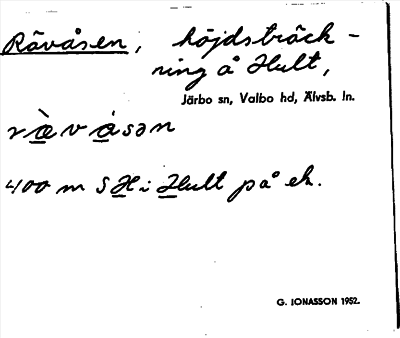 Rävåsen, höjdsträck-
ning å Hult,
Järbo sn, Valbo hd, Älvsb. ln.
räv åsən
400 m S H i Hult på ek.
G. IONASSON 1952.